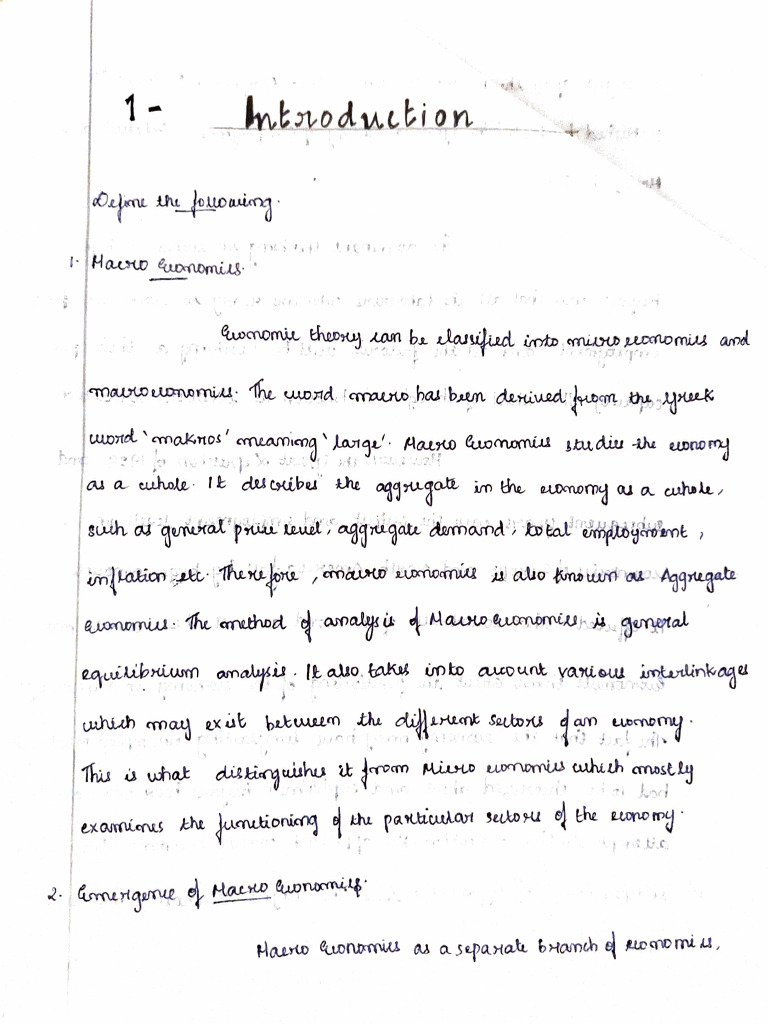 1- Introduction
Define the following.
1. Macro Economics.
Economic theory can be classified into micro economics and
macroeconomics. The word macro has been derived from the Greek
word 'makros' meaning 'large'. Macro Economics studies the economy
as a whole. It describes the aggregate in the economy as a whole,
such as general price level, aggregate demand, total employment,
inflation etc. Therefore, macro economics is also known as Aggregate
Economics. The method of analysis of Macro Economics is general
equilibrium analysis. It also takes into account various interlinkages
which may exist between the different sectors of an economy.
This is what distinguishes it from Micro economics which mostly
examines the functioning of the particular sectors of the economy.
2. Emergence of Macro Economics.
Macro Economics as a separate branch of economics,